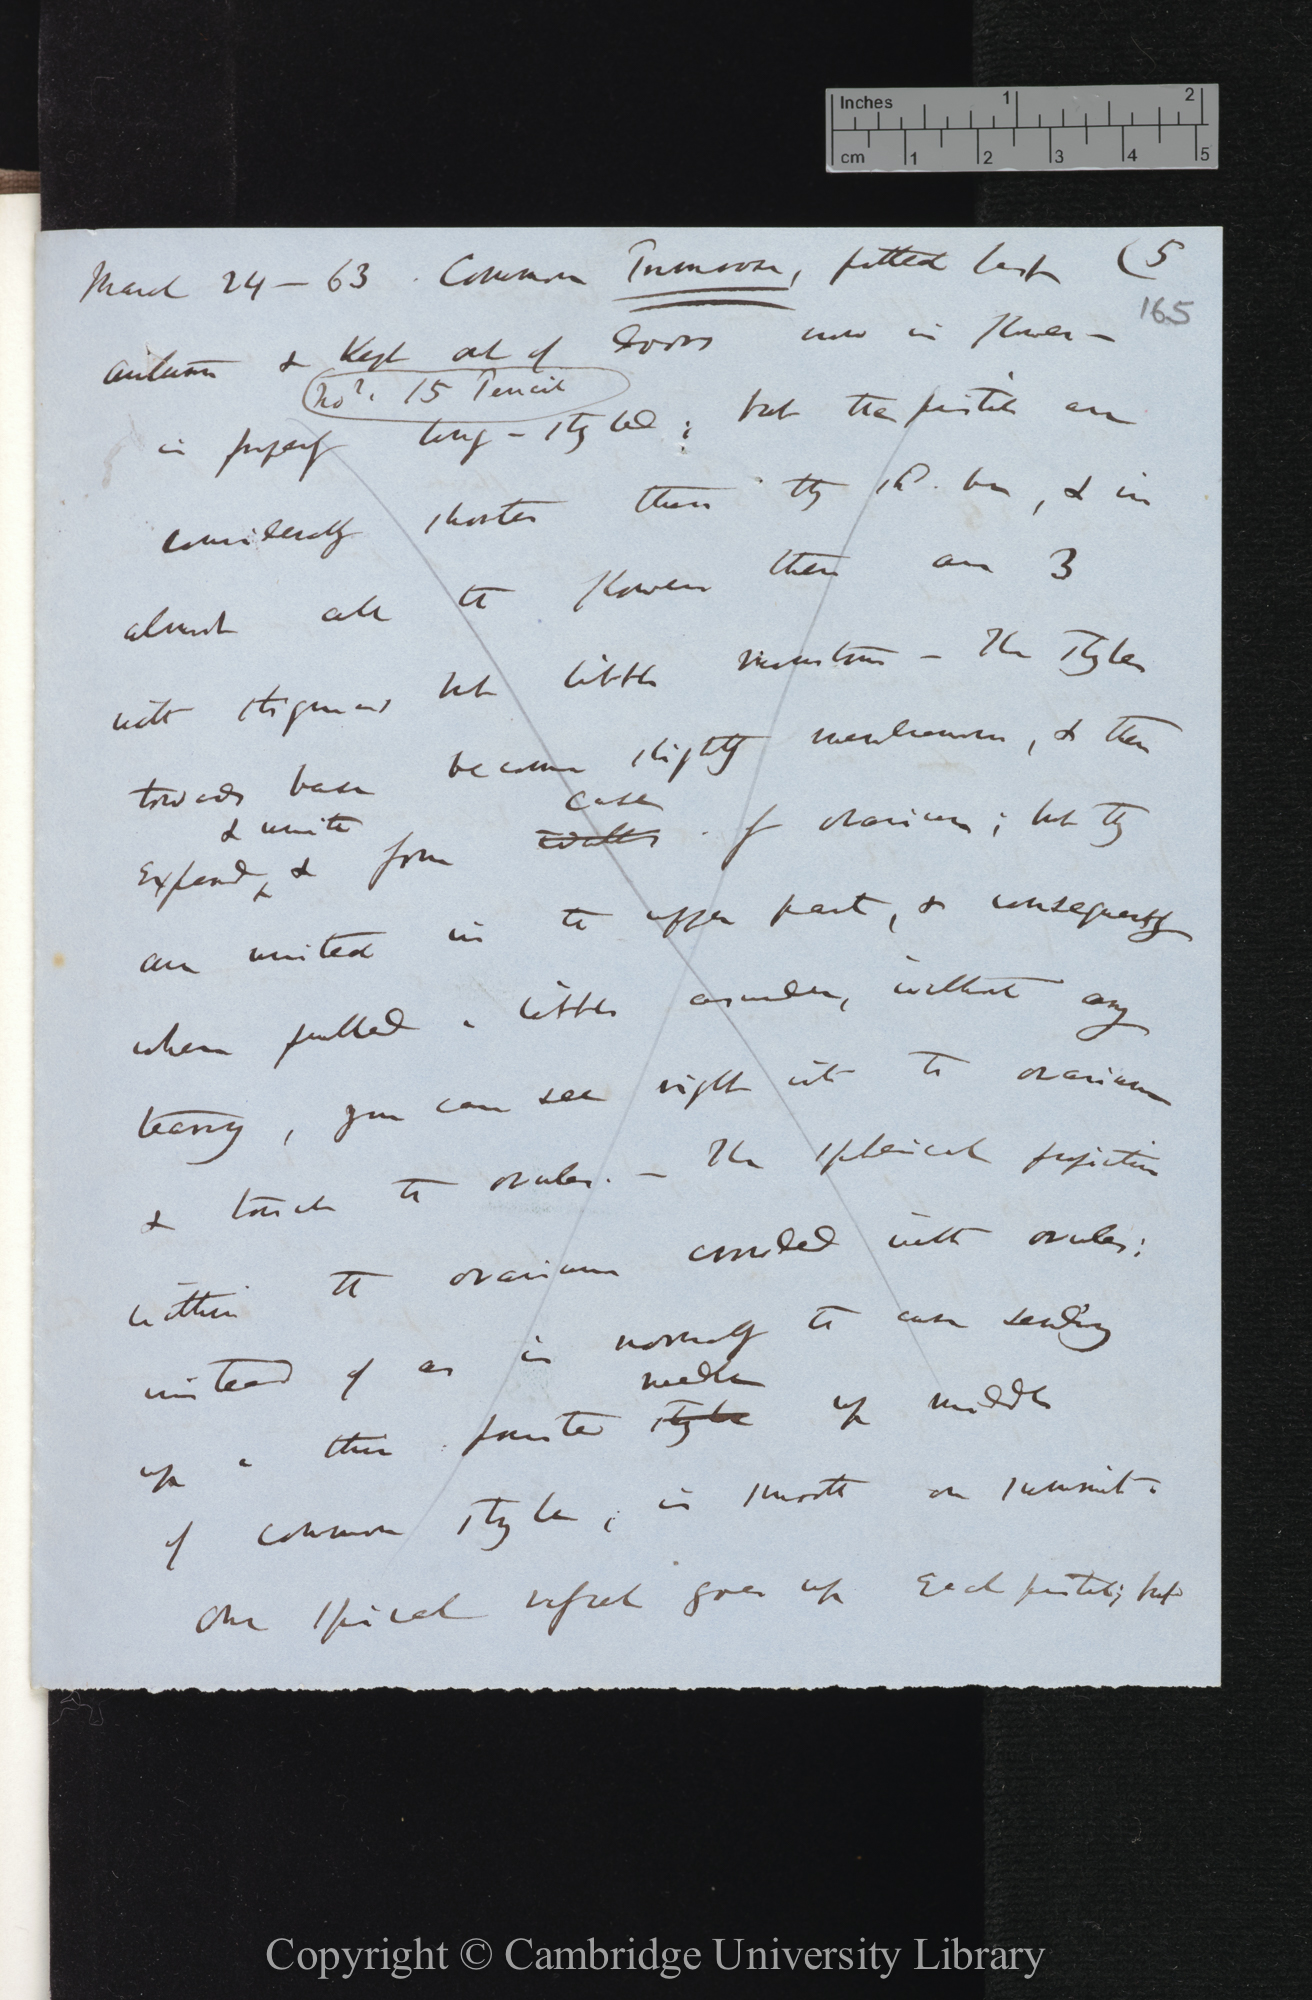 Inches 1 2
cm 1 2 3 4 5
March 24 — 63. Common Primrose, potted last (5
165
autumn & Kept out of doors now in flower —
(No. 15 Pencil
is properly long-styled; but the pistils are
considerably shorter than they shd. be, & in
almost all the flowers there are 3
with stigmas but little monstrous — The styles
towards base become slightly membranous, & then
& unite case
expand, & form walls of ovarium; but they
are united in the upper part, & consequently
when pulled a little asunder, without any
tearing, you can see right into the ovarium
& touch the ovules. — The spherical projection
within the ovarium crowded with ovules;
instead of as is normally the case sending
needle
up a thin pointed style up middle
of common style, is smooth on summit.
One spiral vessel goes up each pistil; but
Copyright © Cambridge University Library